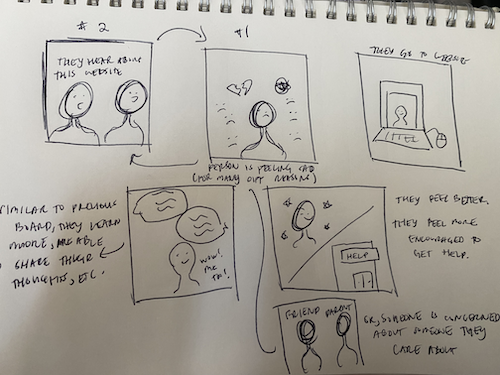 # 2
# 1
THEY HEAR ABOUT
THIS WEBSITE
THEY GO TO WEBSITE
PERSON IS FEELING SAD
(FOR MANY REASONS)
SIMILAR TO PREVIOUS
BOARD, THEY LEARN
MORE, ARE ABLE
TO SHARE THEIR
THOUGHTS, ETC.
WOW!
ME
TOO!
HELP
THEY FEEL BETTER.
THEY FEEL MORE
ENCOURAGED TO
GET HELP.
FRIEND PARENT
OR, SOMEONE IS CONCERNED
ABOUT SOMEONE THEY
CARE ABOUT